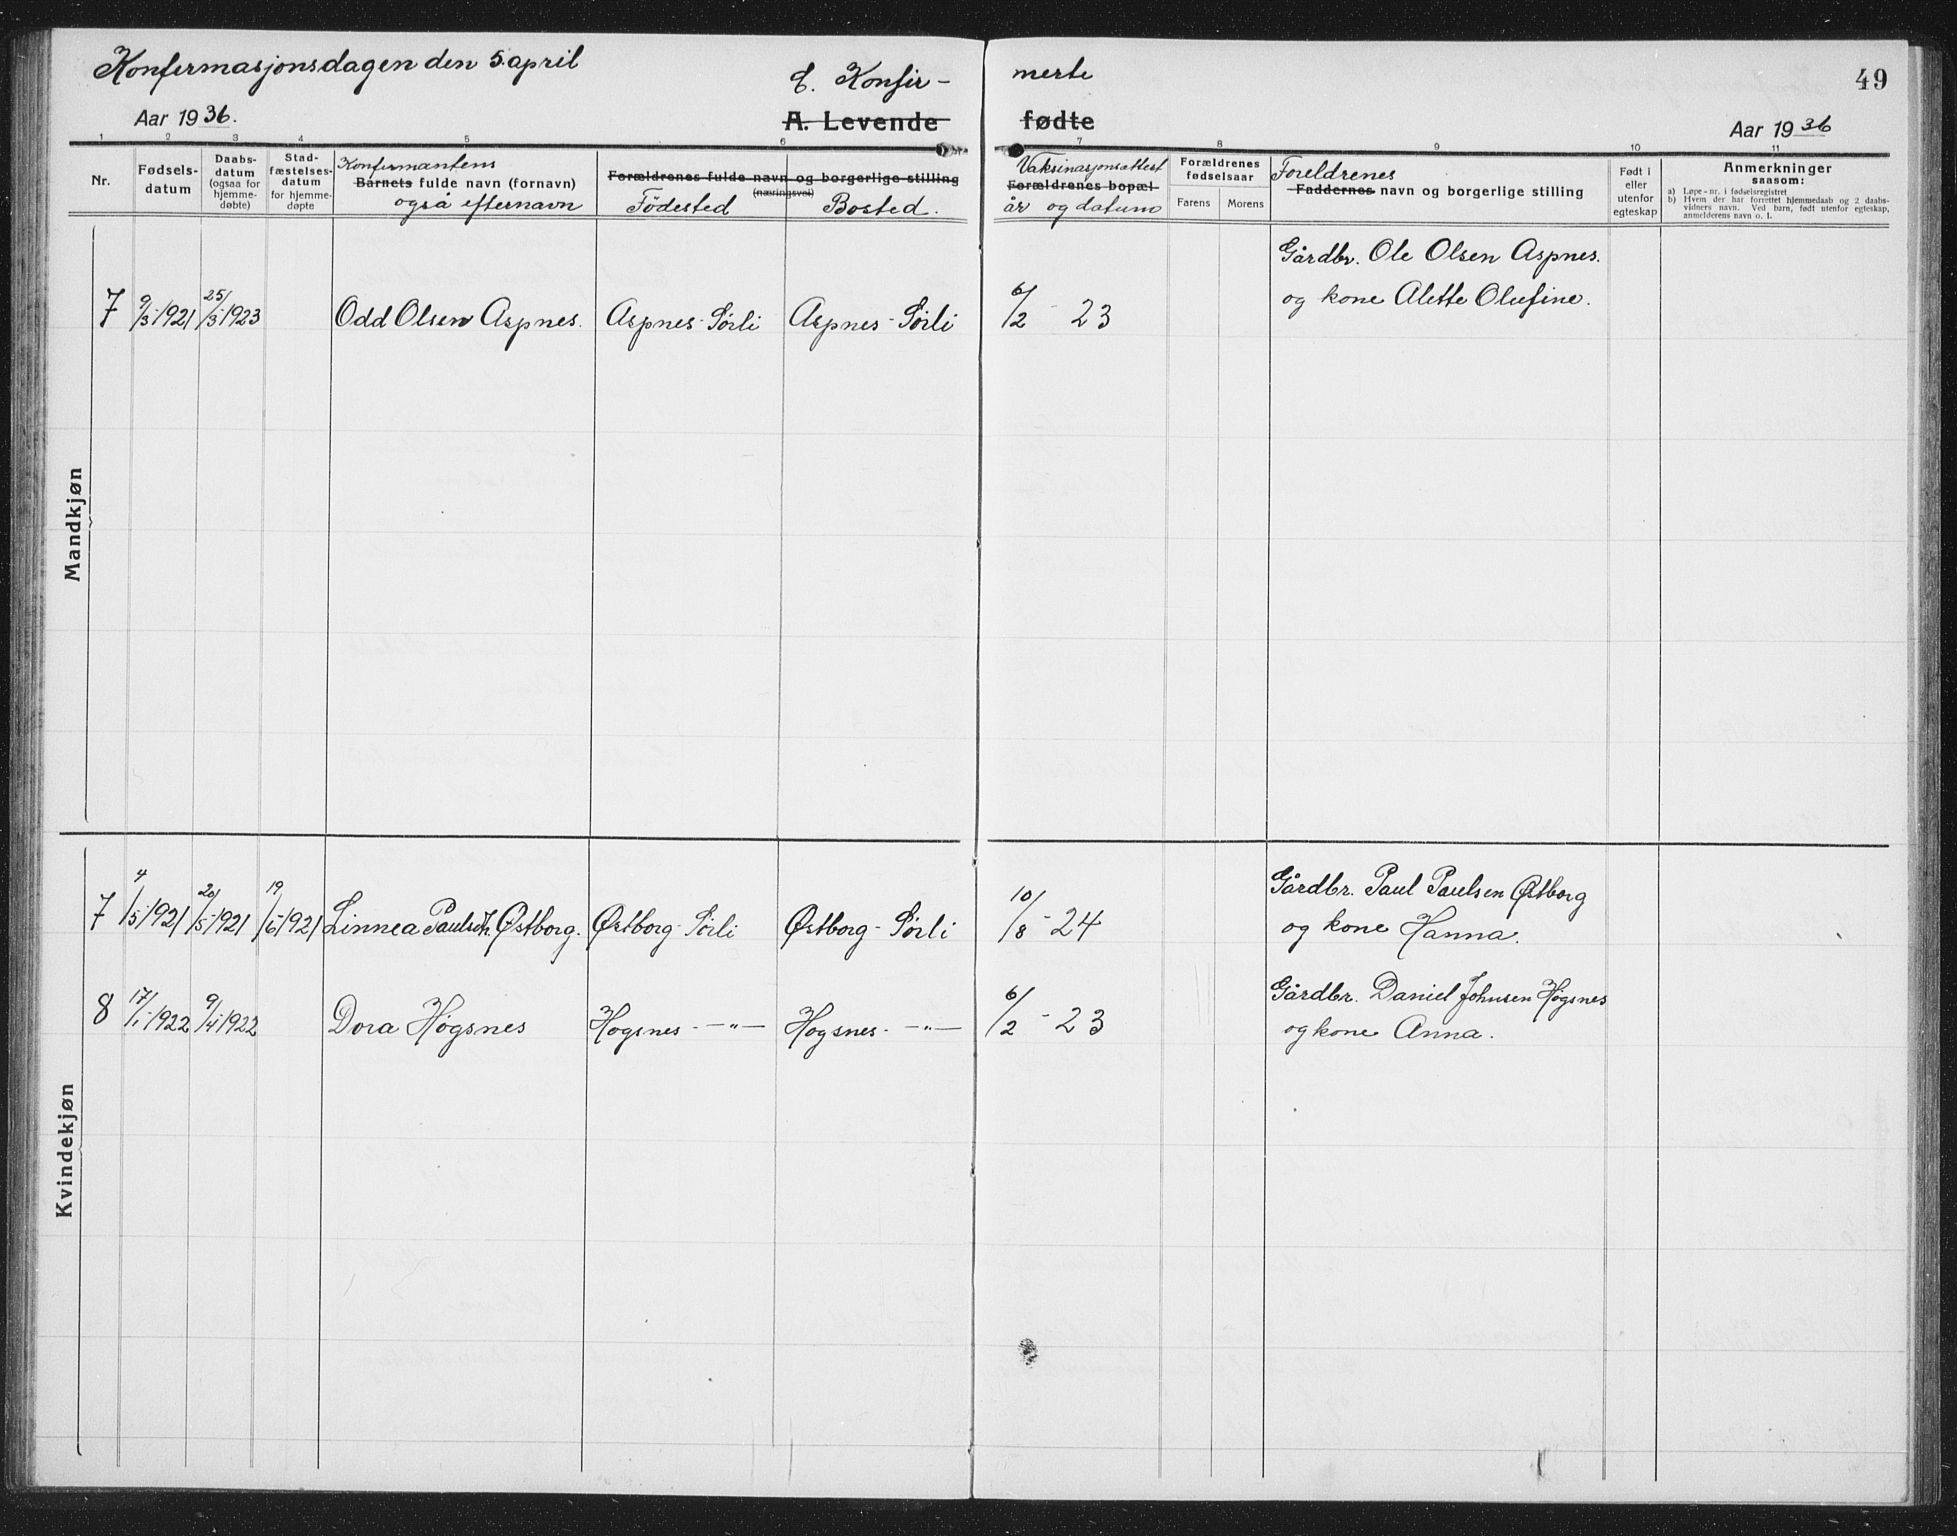 Konfermasjonsdagen den 5. april
E. Konfir- merte
49
Aar 1936.
A. Levende fødte
Aar 1936
1 2 3 4 5 6 7 8 9 10 11
Nr.
Fødsels-
datum
Daabs-
datum
(ogsaa for
hjemme-
døbte)
Stad-
fæstelses-
datum
for hjemme-
døpte
Konfirmantens
Barnets fulde navn (fornavn)
også efternavn
Forældrenes fulde navn og borgerlige stilling
(næringsvei)
Födested
Bosted.
Vaksinasjonsattest
Forældrenes bopæl
år og datum
Forældrenes
fødselsaar
Farens Morens
Foreldrenes
Faddernes navn og borgerlige stilling
Født i
eller
utenfor
egteskap
Anmerkninger
saasom:
a) Løpe-nr. i fødselsregistret
b) Hvem der har forrettet hjemmedaab og 2 daabs-
vidners navn. Ved barn, født utenfor egteskap,
anmelderens navn o. l.
Mandkjøn
Gårdbr. Ole Olsen Aspnes.
7 9/3-1921 25/3-1923 Odd Olsen Aspnes. Aspnes - Sörli Aspnes - Sörli 6/2 - 23 og kone Alette Olufine.
Kvindekjøn
Gårdbr. Paul Paulsen Østborg
7 4/5-1921 20/5-1921 19/6-1921 Linnea Paulsen Østborg. Østborg - Sörli Østborg - Sörli 10/8 - 24 og kone Hanna.
Gårdbr. Daniel Johnsen Högsnes
8 17/1-1922 9/4-1922 Dora Högsnes Hogsnes - -"- Hogsnes - -"- 6/2 - 23 og kone Anna.